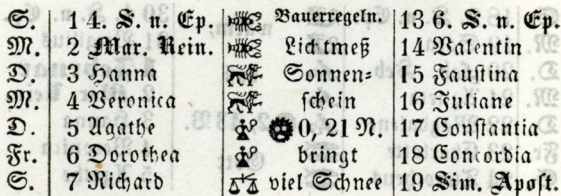 S. 1 4. S. n. Ep. Bauerregeln. 13 6. S. n. Ep.
M. 2 Mar. Rein. Lichtmeß 14 Valentin
D. 3 Hanna Sonnen= 15 Faustina
M. 4 Veronica schein 16 Juliane
D. 5 Agathe 0, 21 N. 17 Constantia
Fr. 6 Dorothea bringt 18 Concordia
S. 7 Richard viel Schnee 19 Sim. Apost.